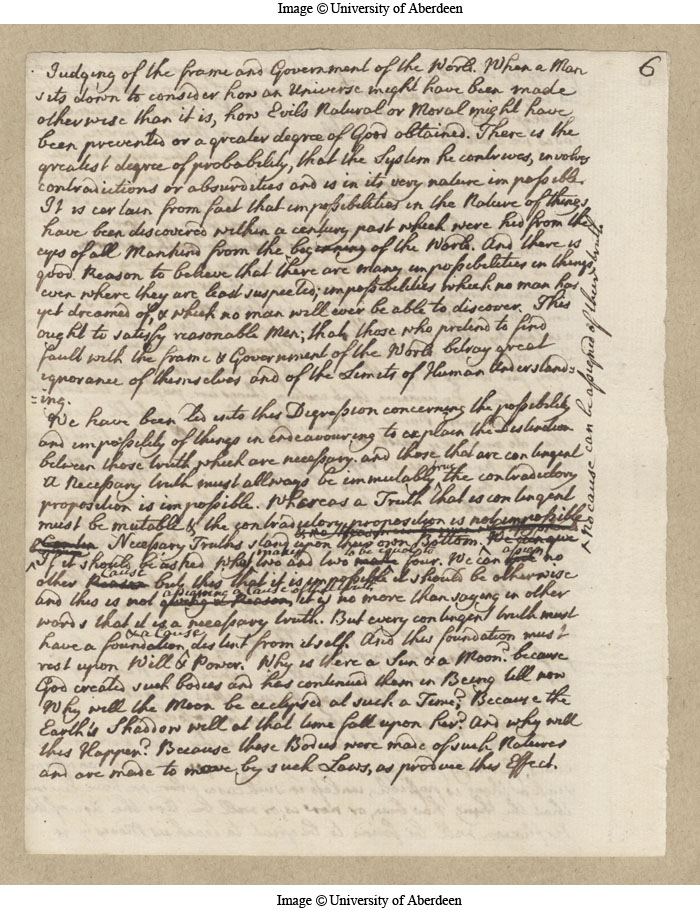 Image © University of Aberdeen
6
Judging of the frame and Government of the World. When a Man
sits down to consider how an Universe might have been made
otherwise than it is, how Evils Natural or Moral might have
been prevented or a greater degree of Good obtained. There is the
greatest degree of probability, that the System he contrives, involves
contradictions or absurdities and is in its very nature impossible.
It is certain from fact that impossibilities in the Nature of things
have been discovered within a century past which were hid from the
eyes of all Mankind from the beginning of the World. And there is
good Reason to believe that there are many impossibilities in things
even where they are least suspected; impossibilities which no man has
yet dreamed of, & which no man will ever be able to discover. This
ought to satisfy reasonable Men; that those who pretend to find
fault with the frame & Government of the World betray great
ignorance of themselves and of the Limits of Human Understand=
=ing.
We have been led into this Digression concerning the possibility
and impossibility of things in endeavouring to explain the Distinction
between those truth which are necessary. and those that are contingent
A Necessary truth must allways be immutably true the contradictory
proposition is impossible. Whereas a Truth that is contingent
must be mutable & the contradictory proposition is not impossible
Necessary Truths stand upon their own Bottom. We can give
^ No cause can be assigned of their truth
If it should be asked What makes two and two to be equal to four. We can assign no
other Cause but this that it is impossible it should be otherwise
and this is not assigning a Cause of their truth, it is no more than saying in other
words that it is a necessary truth. But every contingent truth must
have a foundation & a Cause distinct from itself. And this foundation must
rest upon Will & Power. Why is there a Sun & a Moon? because
God created such bodies and has continued them in Being till now
Why will the Moon be ecclipsed at such a Time? Because the
Earth's Shaddow will at that time fall upon her. And why will
this Happen? Because these Bodies were made of such Natures
and are made to move by such Laws, as produce this Effect.
Image © University of Aberdeen